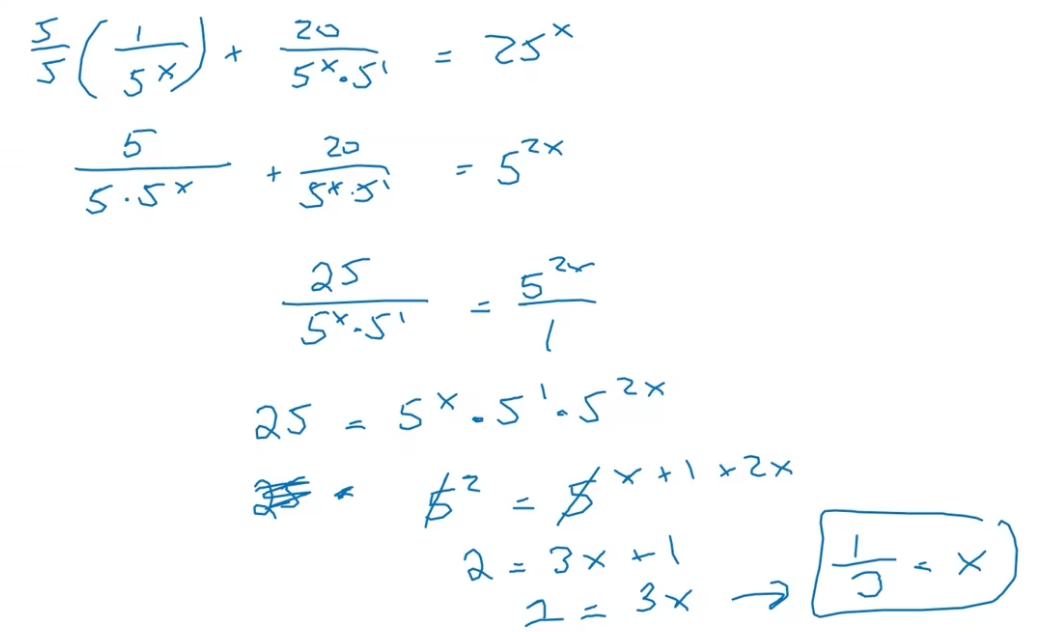 5/5 (1/5^x) + 20/(5^x · 5^1) = 25^x
5/(5 · 5^x) + 20/(5^x · 5^1) = 5^(2x)
25/(5^x · 5^1) = 5^(2x)/1
25 = 5^x · 5^1 · 5^(2x)
5^2 = 5^(x + 1 + 2x)
2 = 3x + 1
1 = 3x → 1/3 = x